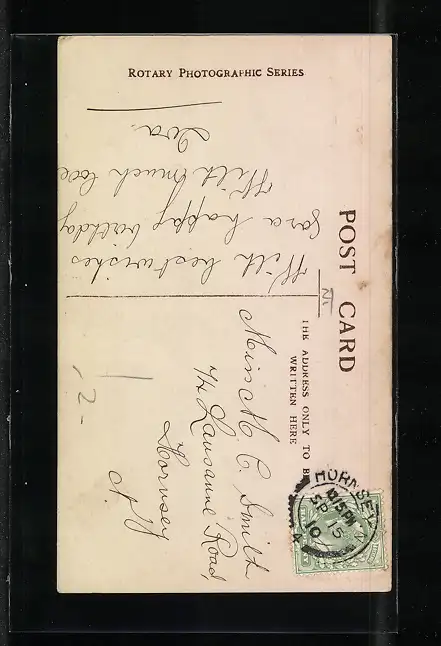 ROTARY PHOTOGRAPHIC SERIES
POST CARD
THE ADDRESS ONLY TO BE
WRITTEN HERE
With best wishes
for a happy birthday
With much love
Iva.
Miss M. C. Smith
74 Lausanne Road,
Hornsey
N.
HORNSEY
SP 5
10
12-